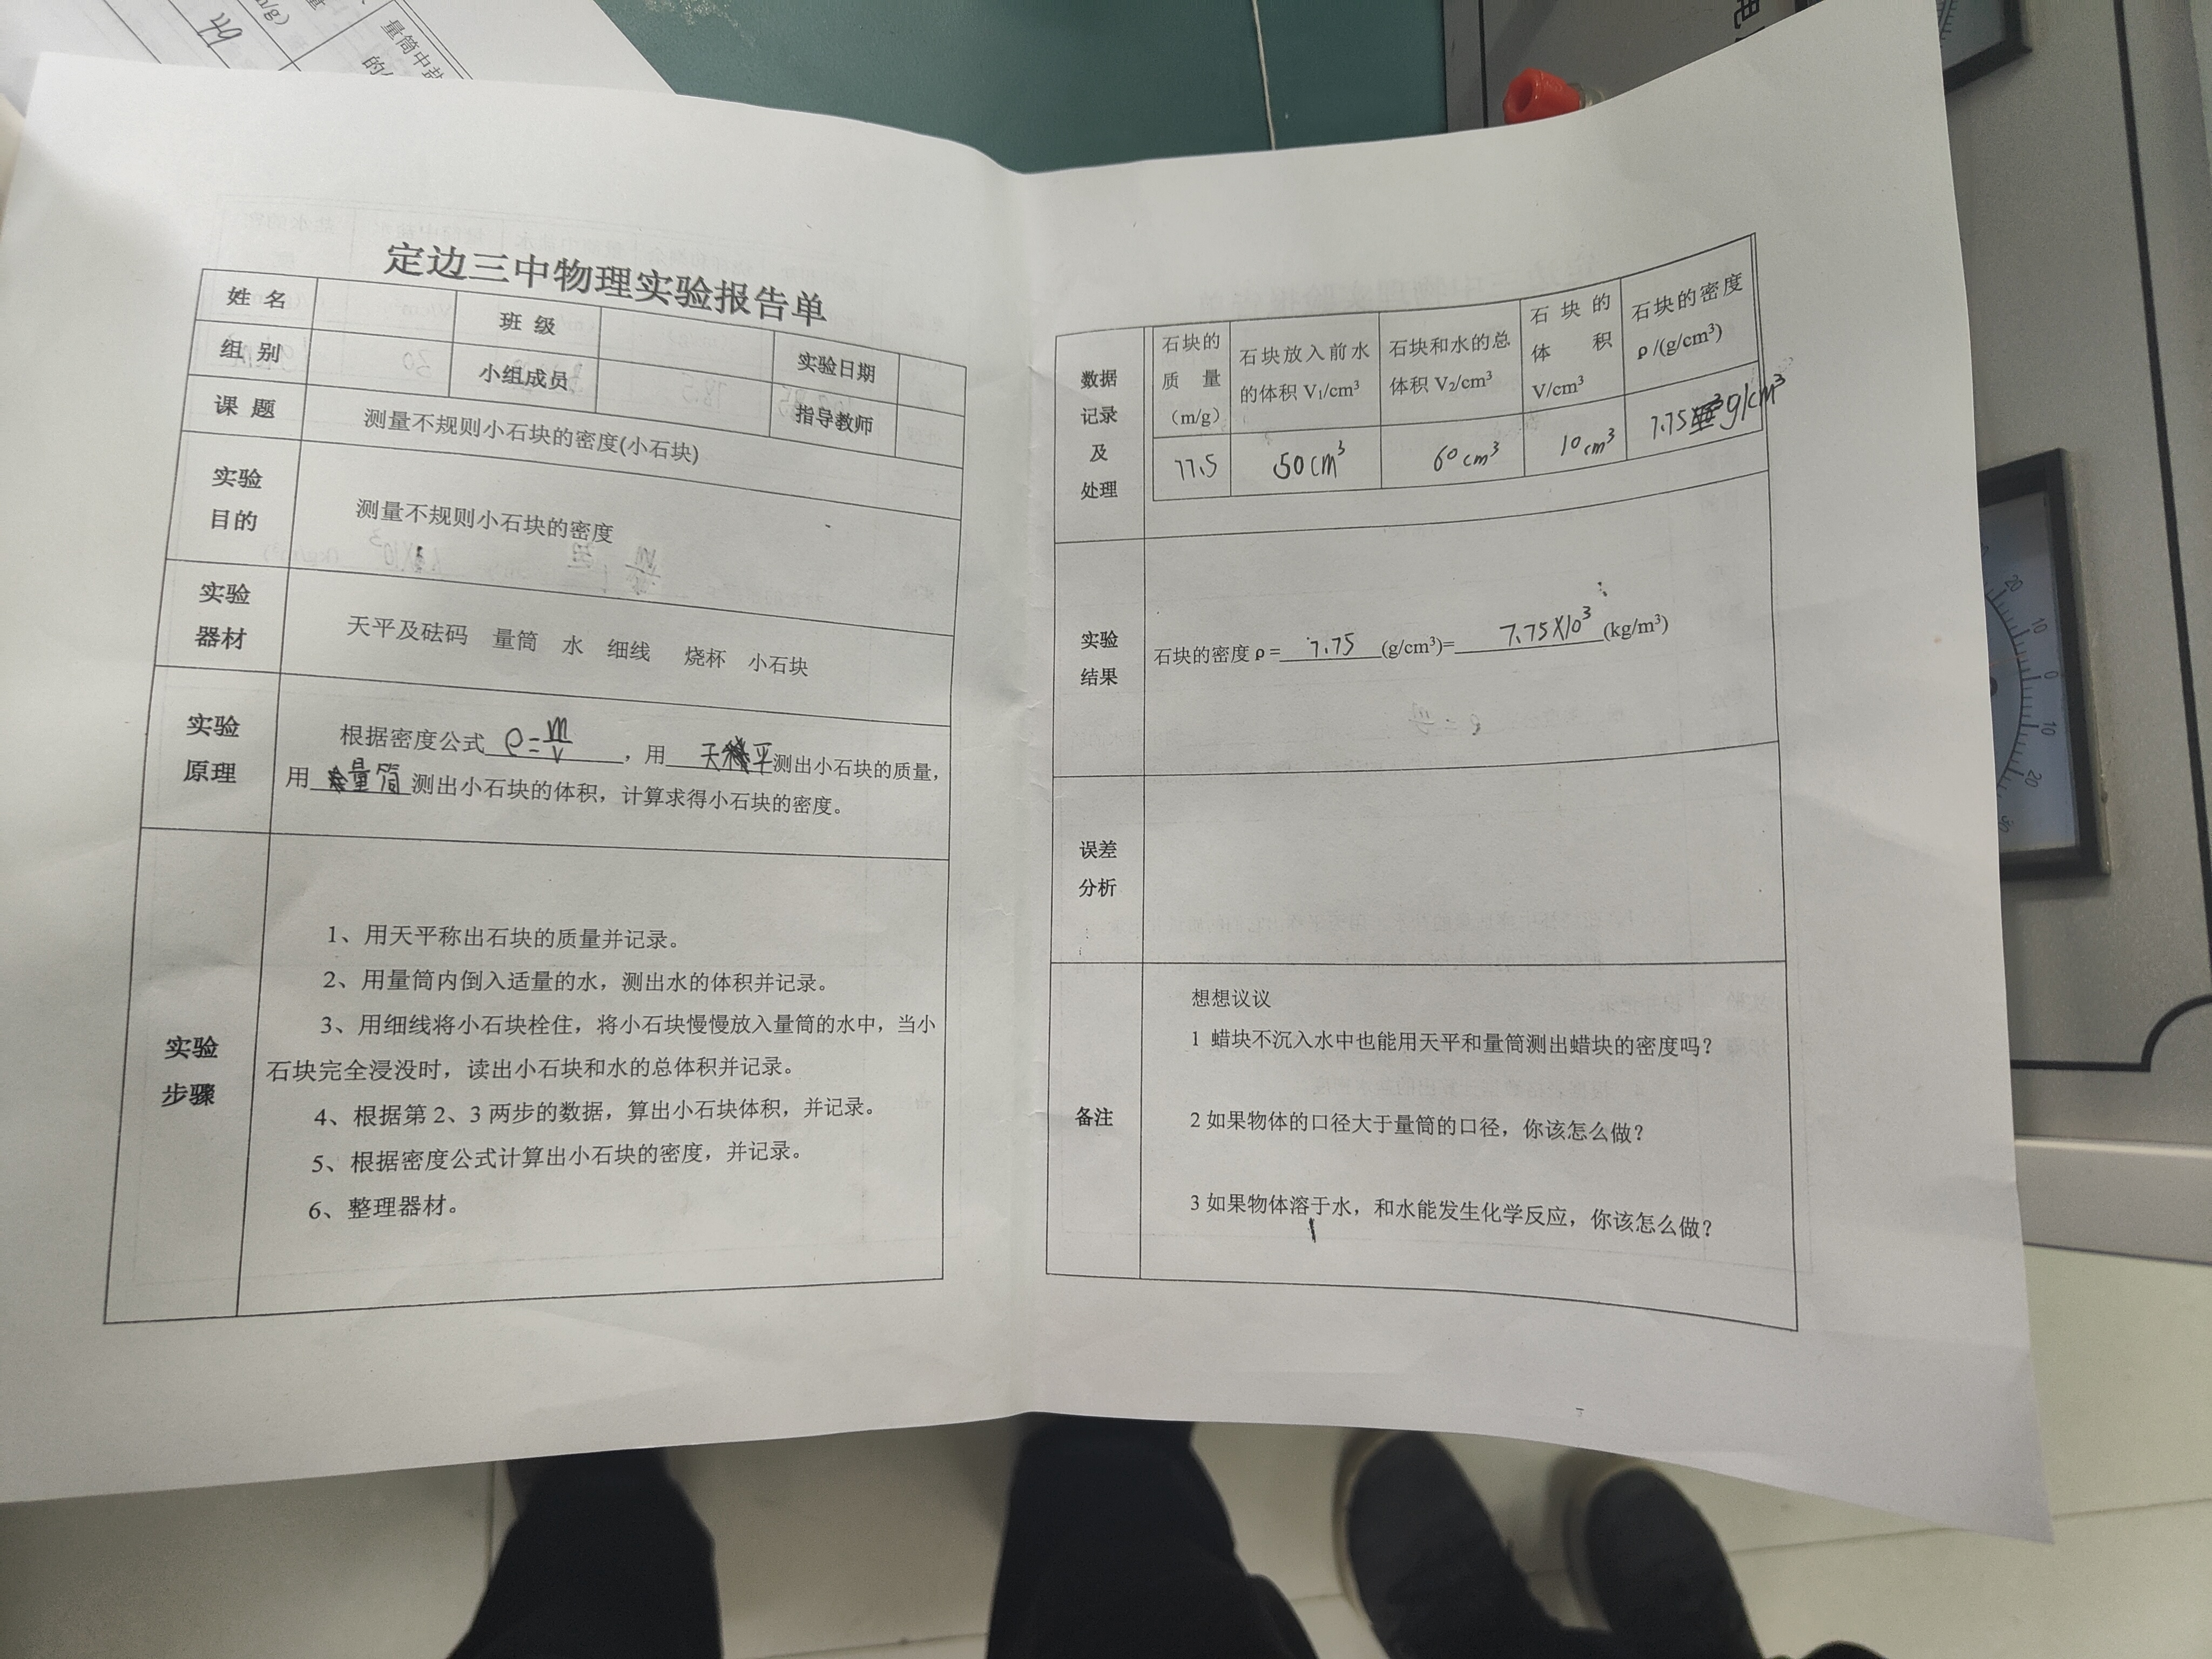 量筒中盐
定边三中物理实验报告单
姓 名
班 级
实验日期
组 别
小组成员
指导教师
课 题
测量不规则小石块的密度(小石块)
实验
目的
测量不规则小石块的密度
实验
器材
天平及砝码 量筒 水 细线 烧杯 小石块
实验
原理
根据密度公式 ρ=m/v ，用 天平 测出小石块的质量，
用 量筒 测出小石块的体积，计算求得小石块的密度。
实验
步骤
1、用天平称出石块的质量并记录。
2、用量筒内倒入适量的水，测出水的体积并记录。
3、用细线将小石块栓住，将小石块慢慢放入量筒的水中，当小
石块完全浸没时，读出小石块和水的总体积并记录。
4、根据第 2、3 两步的数据，算出小石块体积，并记录。
5、根据密度公式计算出小石块的密度，并记录。
6、整理器材。
数据
记录
及
处理
石块的
质 量
（m/g）
石块放入前水
的体积 V₁/cm³
石块和水的总
体积 V₂/cm³
石 块 的
体 积
V/cm³
石块的密度
ρ/(g/cm³)
77.5
50cm³
60cm³
10cm³
7.75 g/cm³
实验
结果
石块的密度 ρ= 7.75 (g/cm³)= 7.75X10³ (kg/m³)
误差
分析
备注
想想议议
1 蜡块不沉入水中也能用天平和量筒测出蜡块的密度吗？
2 如果物体的口径大于量筒的口径，你该怎么做？
3 如果物体溶于水，和水能发生化学反应，你该怎么做？
20
10
0
10
20